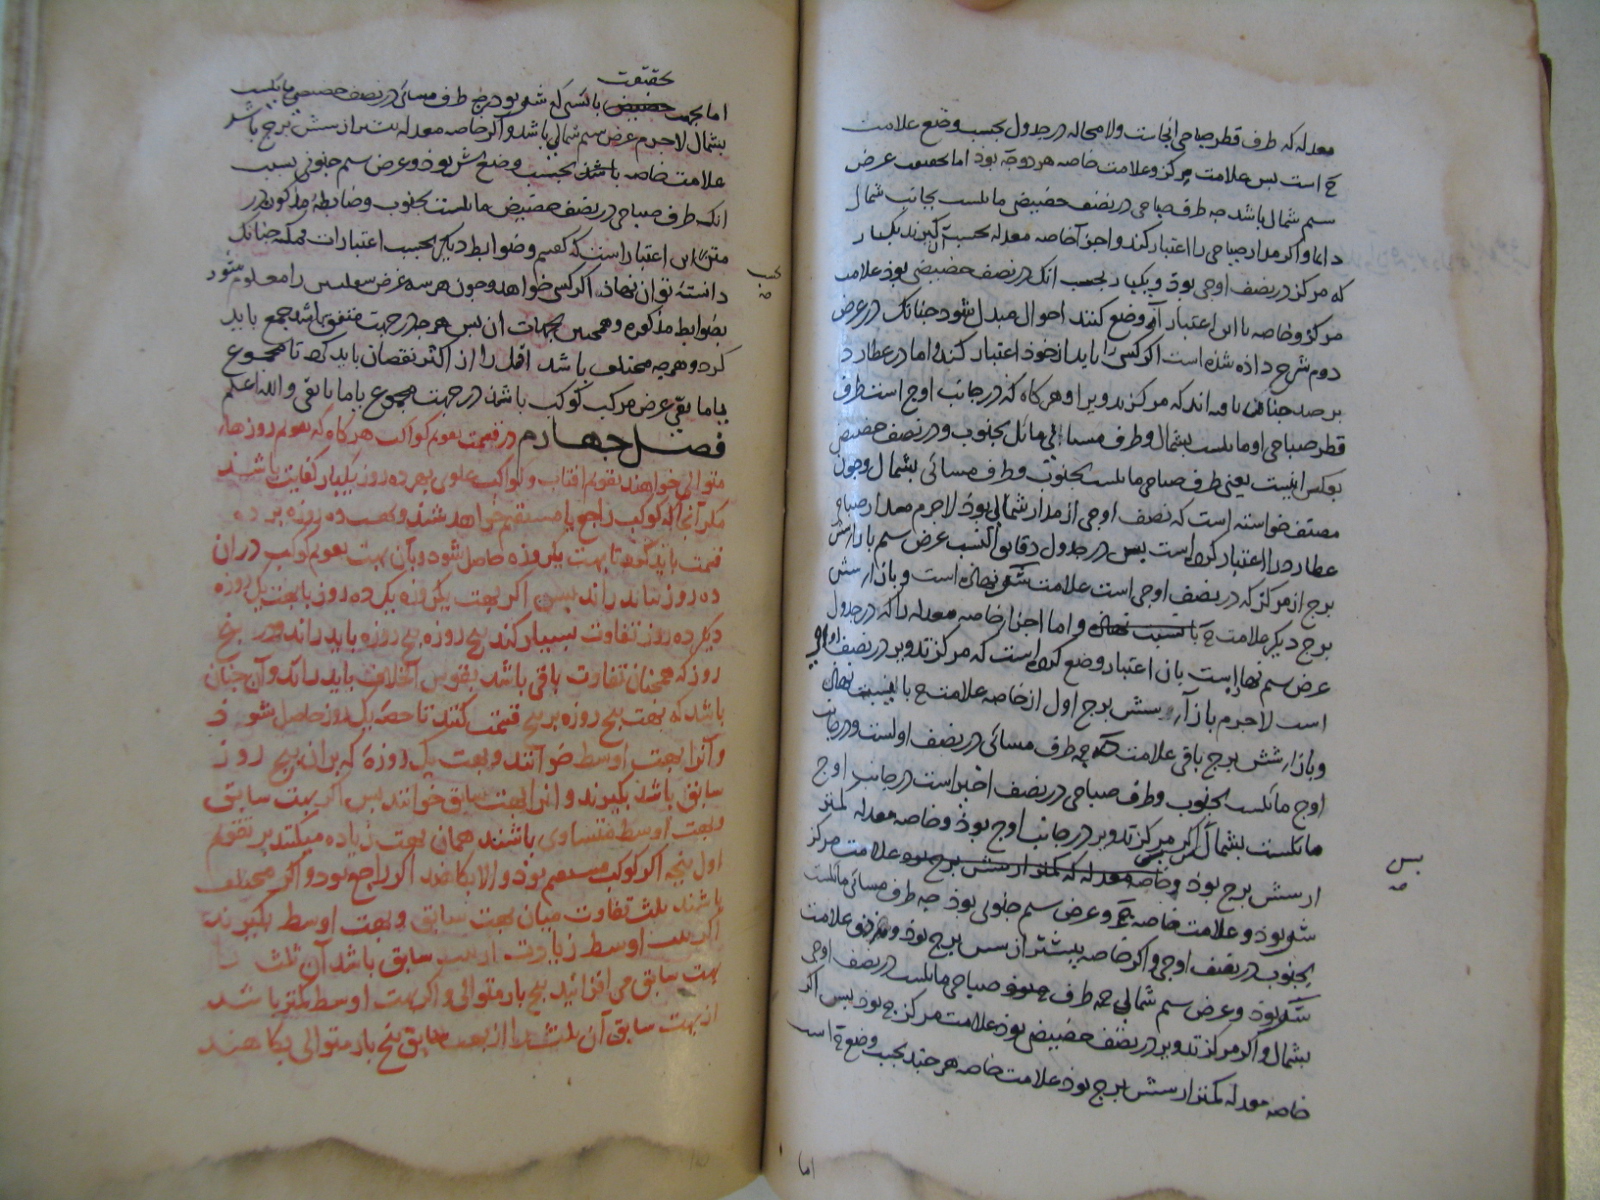 معدله که طرف قطر صباحی آنجاست ولا محاله در جدول بحسب وضع علامت
است بس علامت مرکز و علامت خاصه هر دو بود اما بحقیقت عرض
سیم شمال باشد چه طرف صباحی در نصف حضیض مایلست بجانب شمال
دایما و اگر مدار صباحی را اعتبار کنند و اجزآ خاصه معدله بحسب آن گیرند یکبار
که مرکز در نصف اوجی بود و یکبار بحسب انک در نصف حضیضی بود علامت
مرکز و خاصه با این اعتبار وضع کنند احوال مبدل شود چنانک در عرض
دوم شرح داده شده است اگر کسی را باید از خود اعتبار کند اما در عطارد
برصد چنان یافته اند که مرکز تدویر او هرکاه که در جانب اوج است طرف
قطر صباحی او مایلست بشمال و طرف مسایی مائل بجنوب و در نصف حضیض
بعکس اینست یعنی طرف صباحی مایلست بجنوب و طرف مسائی بشمال و چون
مصنف خواسته است که نصف اوجی از مدار شمالی بود لاجرم مدار صباحی
عطارد را اعتبار کرده است بس در جدول دقایق النسب عرض سیم بازاء شش
برج از مرکز که در نصف اوجی است علامت نهاده است و بازاء شش
برج دیگر علامت و اما اجزاء خاصه معدله را که در جدول
عرض سیم نهاده است بان اعتبار وضع کرده است که مرکز تدویر در نصف اوجی
است لاجرم بازآء شش برج اول از خاصه علامت نهاده
و بازاء شش برج باقی علامت چه طرف مسائی در نصف اولست و در جانب
اوج مایلست بجنوب و طرف صباحی در نصف اخیر است در جانب اوج
مایلست بشمال بس اگر مرکز تدویر در جانب اوج بود و خاصه معدله کمتر
از شش برج بود علامت مرکز
شو بود و علامت خاصه و عرض سیم جنوبی بود چه طرف مسائی مایلست
بجنوب در نصف اوجی و اگر خاصه بیشتر از شش برج بود علامت
بود و عرض سیم شمالی چه طرف صباحی مایلست در نصف اوجی
بشمال و اگر مرکز تدویر در نصف حضیض بود علامت مرکز بود بس اگر
خاصه معدله کمتر از شش برج بود علامت خاصه هر چند بحسب وضع است
بس
اما
حقیقت
اما بجهت بانسی که شو بود چه طرف مسائی در نصف حضیضی مایلست
بشمال لاجرم عرض سیم شمالی باشد و اگر خاصه معدله بیشتر از شش برج باشد
علامت خاصه باشد بحسب وضع شو بود و عرض سیم جنوبی بسبب
انک طرف صباحی در نصف حضیض مایلست بجنوب و ضابطهٔ مذکور در
متن این اعتبار است که کفتیم و ضوابط دیگر بحسب اعتبارات ممکنه چنانک
دانستهٔ توان نهاد اگر کسی خواهد و چون هر سه عرض سفلیین را معلوم شود
بضوابط مذکوره و همچنین جهات ان بس هرچه در جهت متفق باشد جمع باید
کرد و هرچه مختلف باشد اقل را از اکثر نقصان باید کرد تا مجموع
یا ما بقی عرض مرکب کوکب باشد در جهت مجموع یا ما بقی والله اعلم
فصل چهارم در قسمت تقویم کواکب هرکاه که تقویم روزهاء
متوالی خواهند تقویم افتاب و کواکب علوی بهر ده روز یکبار کفایت باشد
مکر آنجا که کوکب راجع یا مستقیم خواهد شد و بهت ده روزه بر ده
قسمت باید کرد تا بهت یکروزه حاصل شود و بآن بهت تقویم کوکب در ان
ده روز بباید راند بس اگر بهت یکروزه یک ده روز با بهت یک روزه
دیگر ده روز تفاوت بسیار کند پنج روزه پنج روزه باید راند و در پنج
روز که همچنان تفاوت باقی باشد بقوس الخلاف باید راند و آن چنان
باشد که بهت پنج روزه بر پنج قسمت کنند تا حصهٔ یک روز حاصل شود
و آنرا بهت اوسط خوانند و بهت یک روزهٔ که بر ان پنج روز
سابق باشد بگیرند و انرا بهت سابق خوانند بس اگر بهت سابق
و بهت اوسط متساوی باشند همان بهت زیاده میکنند بر تقویم
اول پنجه اگر کوکب مستقیم بود و الا بکاهند اگر راجع بود و اگر مختلف
باشند ثلث تفاوت میان بهت سابق و بهت اوسط بگیرند
اگر بهت اوسط زیادت از بهت سابق باشد آن ثلث را
بهت سابق می افزائید پنج بار متوالی و اگر بهت اوسط کمتر باشد
از بهت سابق آن ثلث را از بهت سابق پنج بار متوالی بکاهند